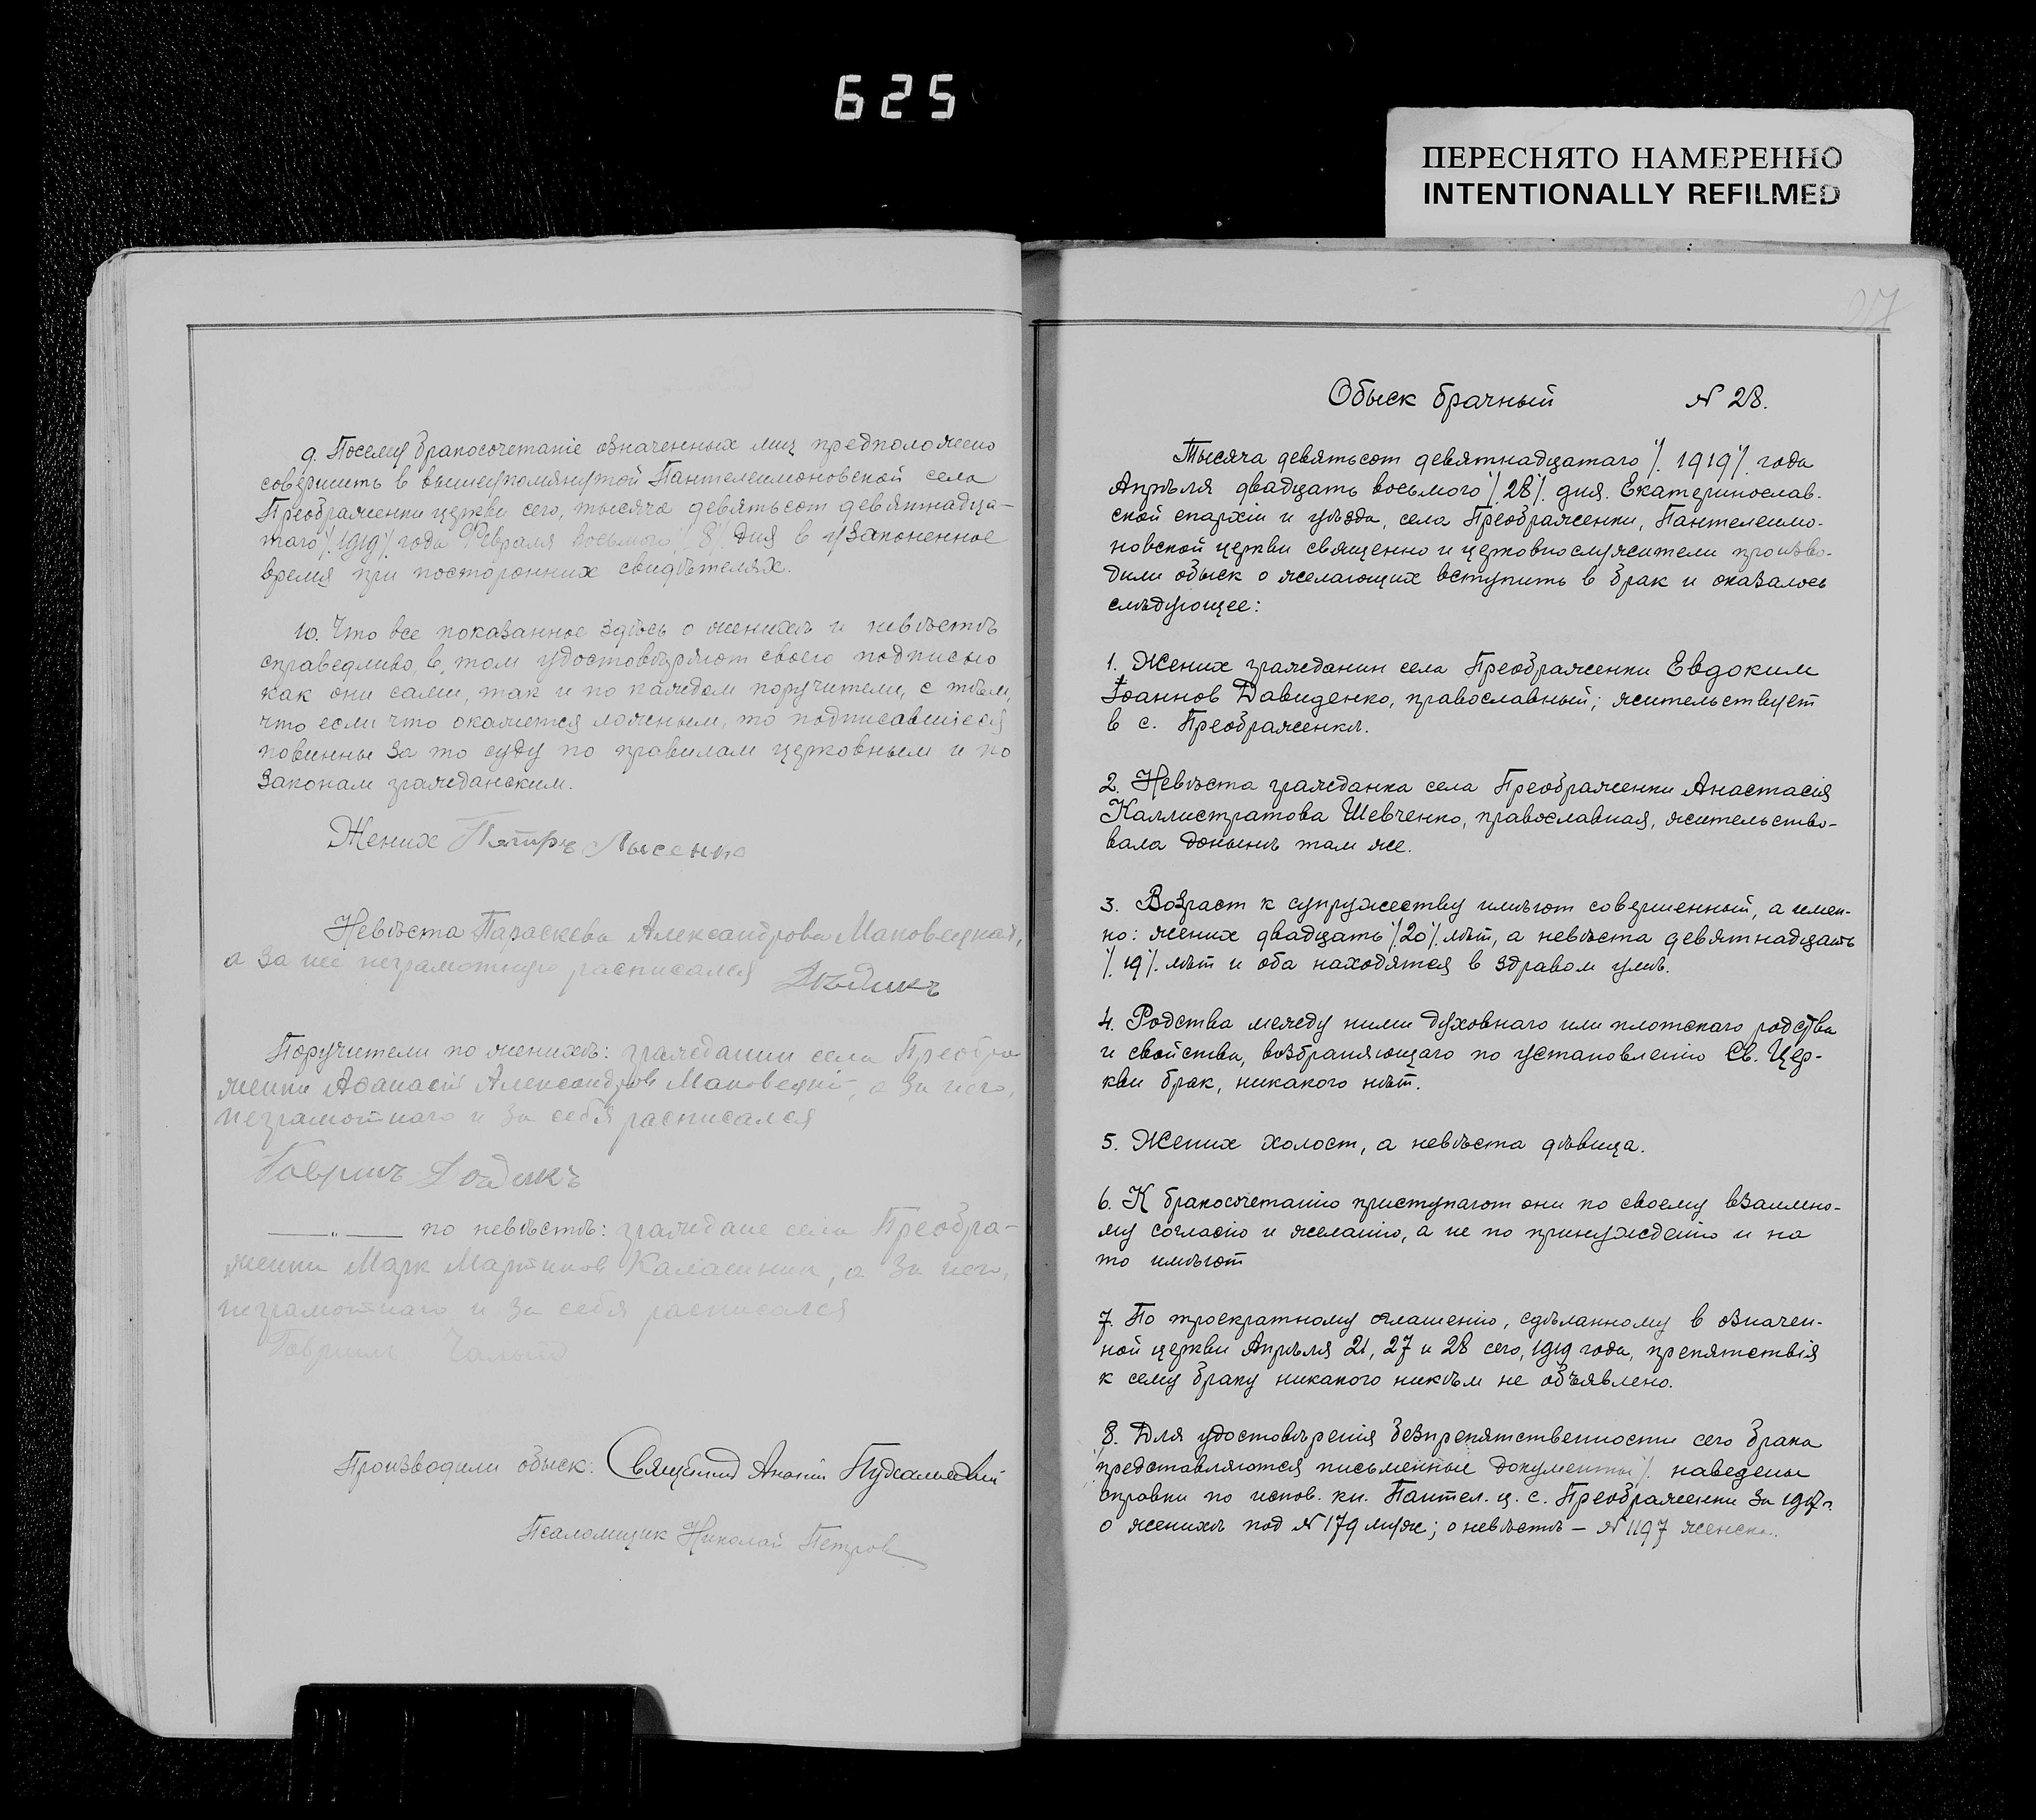 625
ПЕРЕСНЯТО НАМЕРЕННО
INTENTIONALLY REFILMED
9. Посему бракосочетаніе означенных лиц предположено
совершить в вышеупомянутой Пантелеимоновской села
Преображенки церкви сего, тысяча девятьсот девятнадца-
таго /. 1919 /. года Февраля восьмого /. 8 /. дня в узаконенное
время при посторонних свидѣтелях.
10. Что все показанное здѣсь о женихѣ и невѣстѣ
справедливо, в том удостовѣряют своего подписью
как они сами, так и по каждом поручители, с тѣм,
что если что окажется ложным, то подписавшіеся
повинны за то суду по правилам церковным и по
законам гражданским.
Жених Петръ Лысенко
Невѣста Параскева Александрова Маковецкая,
а за нее неграмотную расписался
Поручители по женихѣ: гражданин села Преобра
женки Аѳанасій Александров Маковецкій, а за него,
неграмотнаго и за себя расписался
по невѣстѣ: граждане села Преобра-
женки Марк Мартинов Калашник, а за него,
неграмотнаго и за себя расписался
Гавриил
Производили обыск: Священник
Псаломщик Николай Петров
27
Обыск брачный N 28.
Тысяча девятьсот девятнадцатаго /. 1919 /. года
Апрѣля двадцать восьмого /. 28 /. дня. Екатеринослав-
ской епархіи и уѣзда, села Преображенки, Пантелеимо-
новской церкви священно и церковнослужители произво-
дили обыск о желающих вступить в брак и оказалось
слѣдующее:
1. Жених гражданин села Преображенки Евдоким
Іоаннов Давиденко, православный; жительствует
в с. Преображенкѣ.
2. Невѣста гражданка села Преображенки Анастасія
Каллистратова Шевченко, православная, жительство-
вала донынѣ там же.
3. Возраст к супружеству имѣют совершенный, а имен-
но: жених двадцать /. 20 /. лѣт, а невѣста девятнадцать
/. 19 /. лѣт и оба находятся в здравом умѣ.
4. Родства между ними духовнаго или плотскаго родства
и свойства, возбраняющаго по установленію Св. Цер-
кви брак, никакого нѣт.
5. Жених холост, а невѣста дѣвица.
6. К бракосочетанію приступают они по своему взаимно-
му согласію и желанію, а не по принужденію и на
то имѣют
7. По троекратному оглашенію, сдѣланному в означен-
ной церкви Апрѣля 21, 27 и 28 сего, 1919 года, препятствія
к сему браку никакого никѣм не объявлено.
8. Для удостовѣренія безпрепятственности сего брака
/. представляются письменные документы /. наведены
справки по испов. кн. Пантел. ц. с. Преображенки за 1917 г.
о женихѣ под N 179 мужс; о невѣстѣ – N 1197 женск.